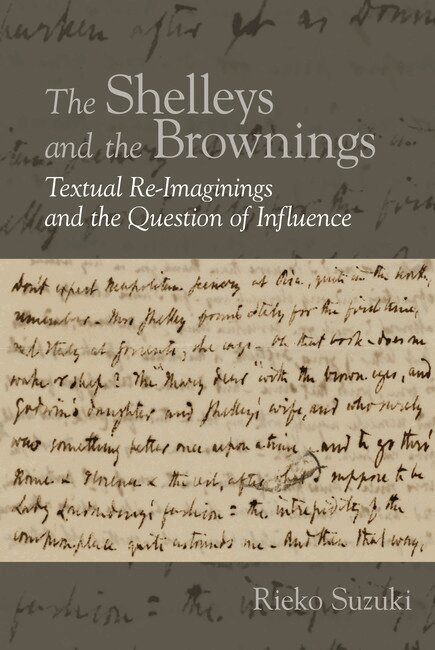 hearken after it as Donn
The Shelleys
and the Brownings
Textual Re-Imaginings
and the Question of Influence
Don't expect Neapolitan Scenery at Pisa, quite in the North,
remember. Mrs Shelley found Italy for the first time,
real Italy at Sorrento, she says. Oh that book - does one
wake or sleep? The "Mary dear" with the brown eyes, and
Godwin's daughter and Shelley's wife, and who surely
was something better once upon a time.. and to go thro'
Rome & Florence & the rest, after what I suppose to be
Lady Londonderry's fashion = the intrepidity of the
commonplace quite astounds me. And then that way,
Rieko Suzuki
fashion = the intre